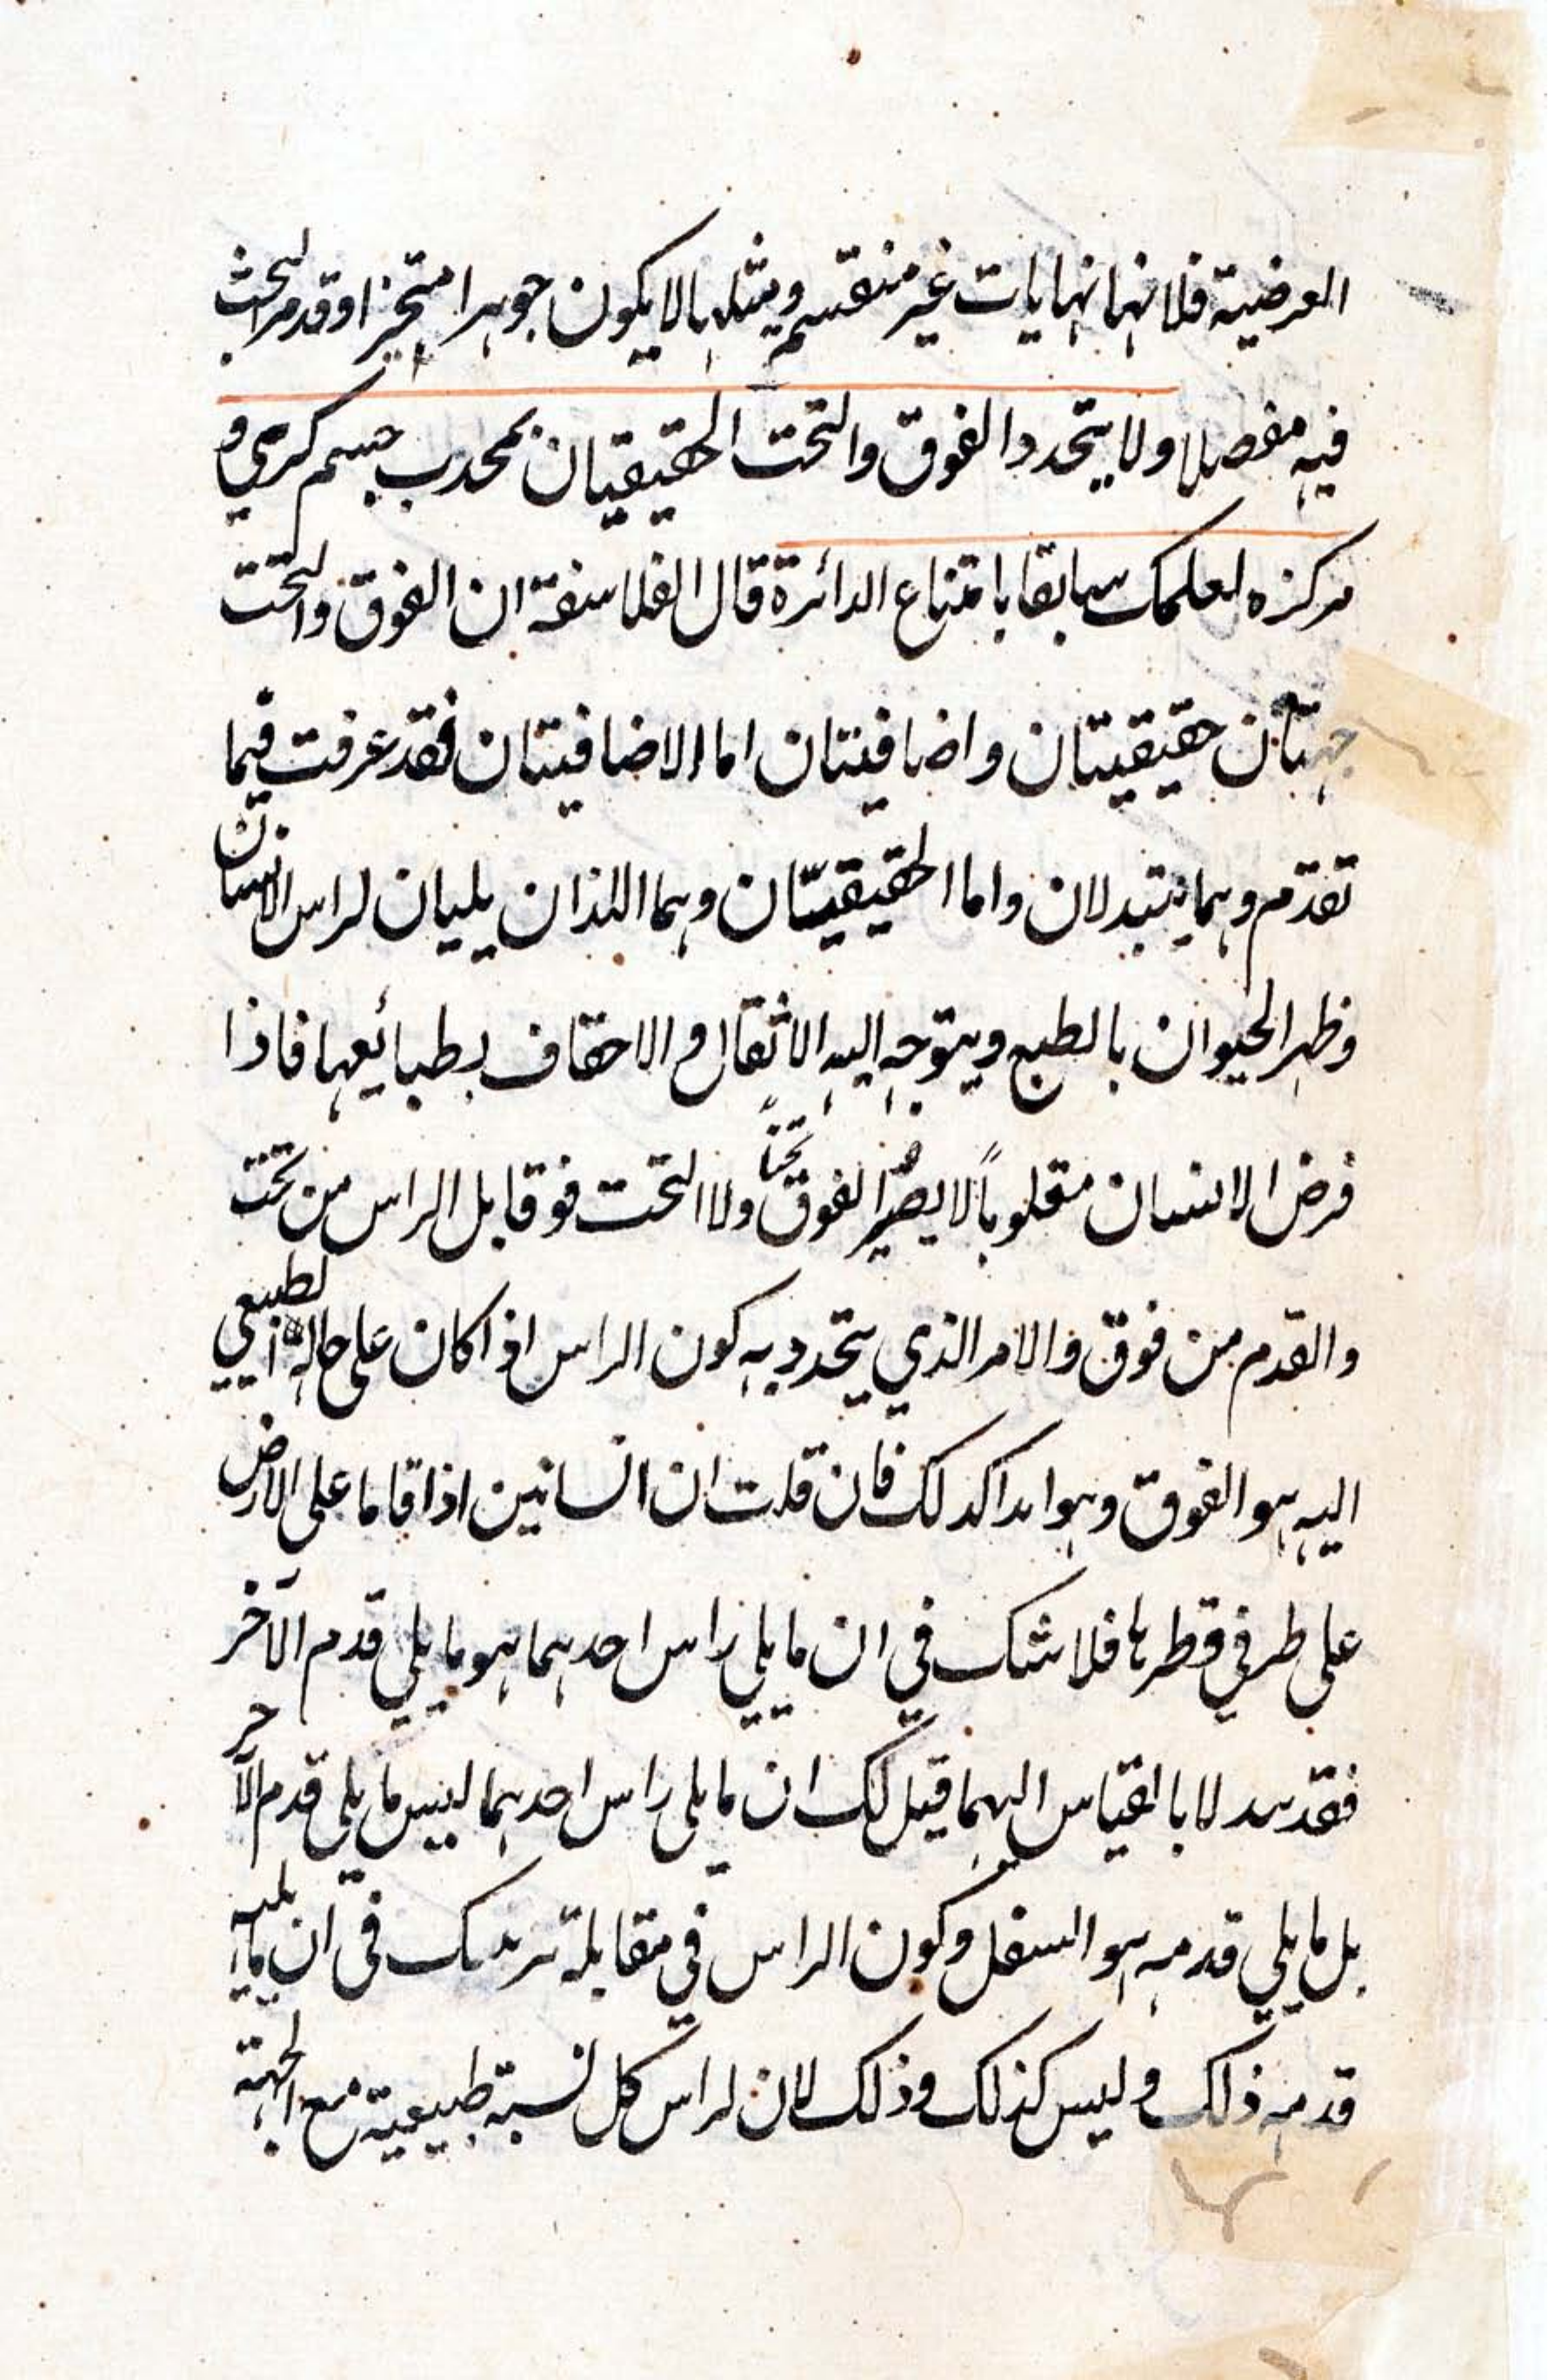 العرضية فلانها نهايات غير منقسمة ومثلها لا يكون جوهرا متحيزا وقد مر البحث
فيه مفصلا ولا يتحدد الفوق والتحت الحقيقيان بمحدب جسم كري و
مركزه لعلمك سابقا بامتناع الدائرة قال الفلاسفة ان الفوق والتحت
جهتان حقيقيتان واضافيتان اما الاضافيتان فقد عرفت فيما
تقدم وهما يتبدلان واما الحقيقيتان وهما اللذان يليان لراس الانسان
وظهر الحيوان بالطبع ويتوجه اليه الاثقال والاخفاف بطبائعها فاذا
فرض الانسان مقلوباً لا يصير الفوق تحتاً ولا التحت فوقا بل الراس من تحت
والقدم من فوق والامر الذي يتحدد به كون الراس اذا كان على حاله الطبيعي
اليه هو الفوق وهو ابدا كذلك فان قلت ان انسانين اذا قاما على الارض
على طرفي قطرها فلا شك في ان ما يلي راس احدهما هو ما يلي قدم الآخر
فقد تبدلا بالقياس اليهما قيل لك ان ما يلي راس احدهما ليس ما يلي قدم الآخر
بل ما يلي قدمه هو السفل وكون الراس في مقابلة في ان ما يليه
قدمه ذلك وليس كذلك وذلك لان لراس كل نسبة طبيعية مع الجهة